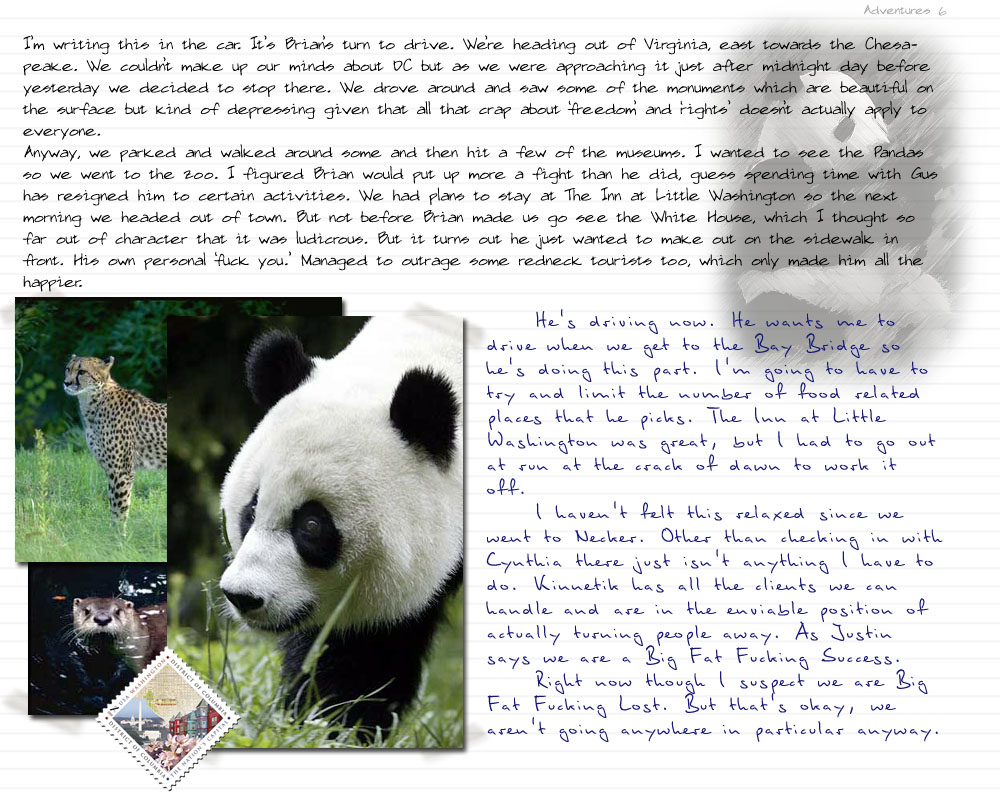 Adventures 6
I'm writing this in the car. It's Brian's turn to drive. We're heading out of Virginia, east towards the Chesa-
peake. We couldn't make up our minds about DC but as we were approaching it just after midnight day before
yesterday we decided to stop there. We drove around and saw some of the monuments which are beautiful on
the surface but kind of depressing given that all that crap about 'freedom' and 'rights' doesn't actually apply to
everyone.
Anyway, we parked and walked around some and then hit a few of the museums. I wanted to see the Pandas
so we went to the zoo. I figured Brian would put up more a fight than he did, guess spending time with Gus
has resigned him to certain activities. We had plans to stay at The Inn at Little Washington so the next
morning we headed out of town. But not before Brian made us go see the White House, which I thought so
far out of character that it was ludicrous. But it turns out he just wanted to make out on the sidewalk in
front. His own personal 'fuck you.' Managed to outrage some redneck tourists too, which only made him all the
happier.
He's driving now. He wants me to
drive when we get to the Bay Bridge so
he's doing this part. I'm going to have to
try and limit the number of food related
places that he picks. The Inn at Little
Washington was great, but I had to go out
at run at the crack of dawn to work it
off.
I haven't felt this relaxed since we
went to Necker. Other than checking in with
Cynthia there just isn't anything I have to
do. Kinnetik has all the clients we can
handle and are in the enviable position of
actually turning people away. As Justin
says we are a Big Fat Fucking Success.
Right now though I suspect we are Big
Fat Fucking Lost. But that's okay, we
aren't going anywhere in particular anyway.
USA WASHINGTON
DISTRICT OF COLUMBIA
DISTRICT OF COLUMBIA
THE NATION'S CAPITAL